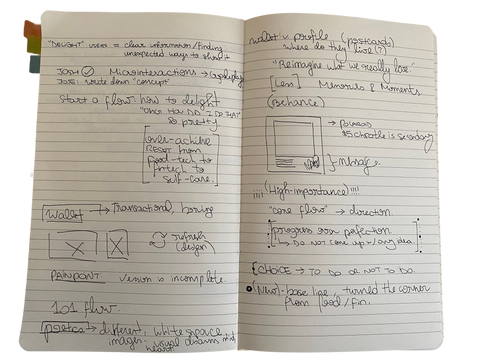 "DELIGHT" users = clear information/finding
unexpected ways to show it
JOSH Microinteractions →
JOSE: Write down "concept"
Start a flow how to delight
"OMG HOW DID I DO THAT"
so pretty
over-achieve
RESET from
food-tech to
fintech to
self-care.
Wallet → Transactional, boring
refresh
design
PAINPOINT version is incomplete
101 flow.
poetics → different, white space
images. visual dreams
heart.
wallet v. profile (postcards)
where do they live(?)
"Reimagine what we really love."
[Lens] Memories & Moments
(Behance)
is secondary
message.
!!!! (High-importance) !!!!
"core flow" → direction.
progress over perfection
↳ Do not come up w/ any idea.
CHOICE → TO DO OR NOT TO DO.
(New) - base line, turned the corner
from food/fin.